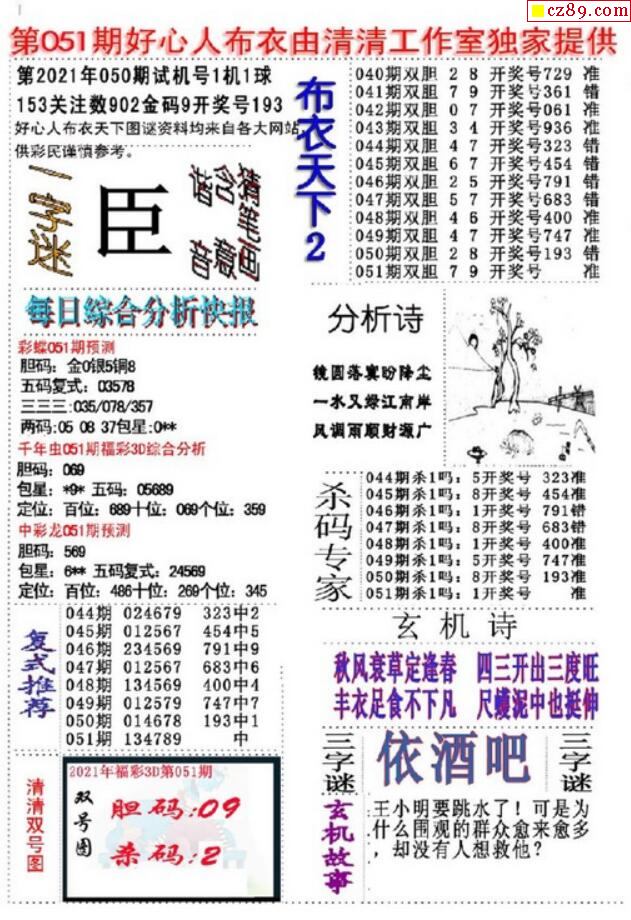 cz89.com
第051期好心人布衣由清清工作室独家提供
第2021年050期试机号1机1球
153关注数902金码9开奖号193
好心人布衣天下图谜资料均来自各大网站,
供彩民谨慎参考。
一字谜
臣
猜笔画
含意
谐音
布衣天下2
040期双胆 2 8 开奖号729 准
041期双胆 7 9 开奖号361 错
042期双胆 0 7 开奖号061 准
043期双胆 3 4 开奖号936 准
044期双胆 4 7 开奖号323 错
045期双胆 6 7 开奖号454 错
046期双胆 2 5 开奖号791 错
047期双胆 5 7 开奖号683 错
048期双胆 4 6 开奖号400 准
049期双胆 4 7 开奖号747 准
050期双胆 2 8 开奖号193 错
051期双胆 7 9 开奖号 准
每日综合分析快报
彩蝶051期预测
胆码：金0银5铜8
五码复式：03578
三三三:035/078/357
两码:05 08 37包星:0**
千年虫051期福彩3D综合分析
胆码：069
包星：*9* 五码：05689
定位：百位：689十位：069个位：359
中彩龙051期预测
胆码：569
包星：6** 五码复式：24569
定位：百位：486十位：269个位：345
分析诗
镜圆落寞盼降尘
一水又绿江南岸
风调雨顺财源广
杀码专家
044期杀1吗：5开奖号 323准
045期杀1吗：8开奖号 454准
046期杀1吗：1开奖号 791错
047期杀1吗：8开奖号 683错
048期杀1吗：1开奖号 400准
049期杀1吗：5开奖号 747准
050期杀1吗：8开奖号 193准
051期杀1吗：1开奖号 准
复式推荐
044期 024679 323中2
045期 012567 454中5
046期 234569 791中9
047期 012567 683中6
048期 134569 400中4
049期 012579 747中7
050期 014678 193中1
051期 134789 中
玄机诗
秋风衰草定逢春 四三开出三度旺
丰衣足食不下凡 尺蠖泥中也挺伸
三字谜
依酒吧
三字谜
清清双号图
2021年福彩3D第051期
双号图
胆码:09
杀码:2
玄机故事
王小明要跳水了！可是为
什么围观的群众愈来愈多
，却没有人想救他？